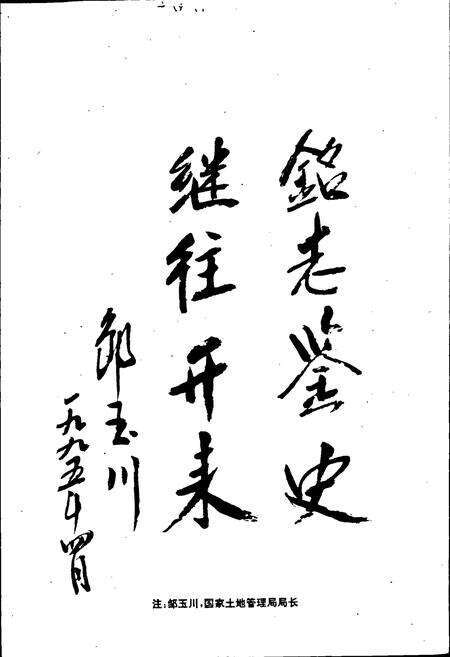 銘志鉴史
继往开来
邹玉川
一九九五年四月
注:邹玉川,国家土地管理局局长